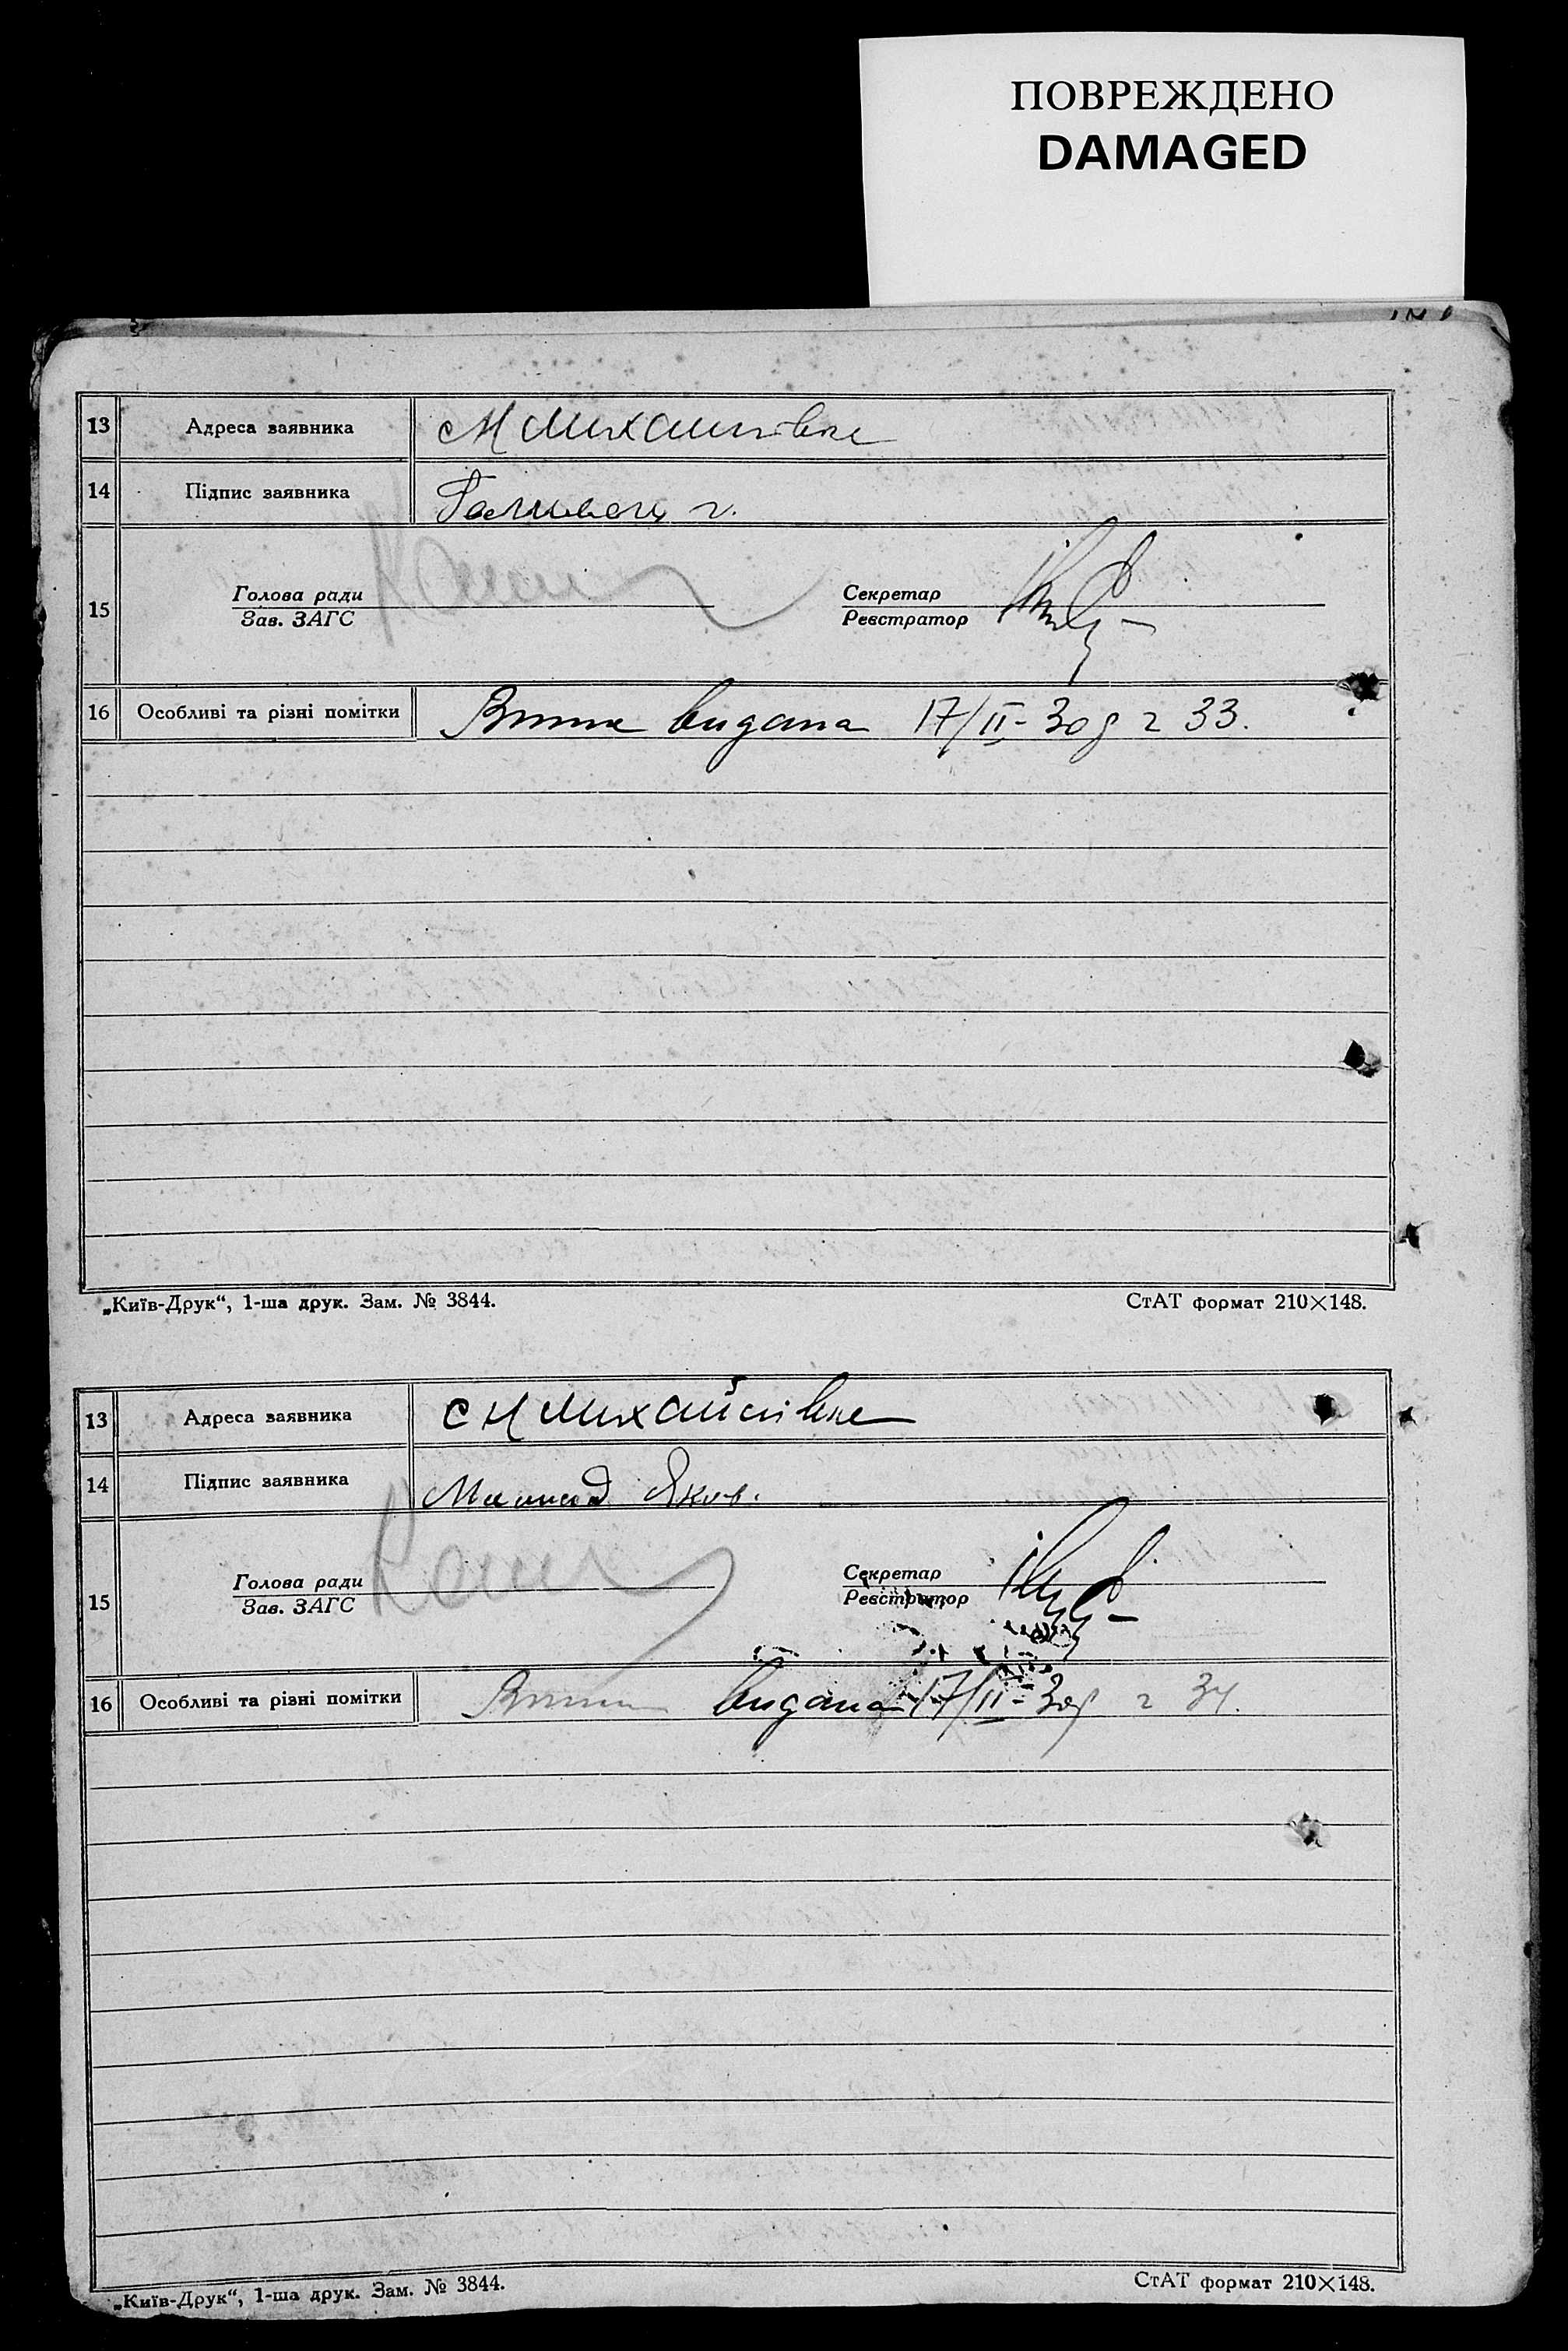 ПОВРЕЖДЕНО
DAMAGED
13 Адреса заявника с М Михайлівка
14 Підпис заявника г.
15 Голова ради Секретар
Зав. ЗАГС Реєстратор
16 Особливі та різні помітки видана 17/II- 33.
„Київ-Друк“, 1-ша друк. Зам. № 3844. СтАТ формат 210×148.
13 Адреса заявника с М Михайлівка
14 Підпис заявника Яков.
15 Голова ради Секретар
Зав. ЗАГС Реєстратор
16 Особливі та різні помітки видана 17/II- 34.
„Київ-Друк“, 1-ша друк. Зам. № 3844. СтАТ формат 210×148.